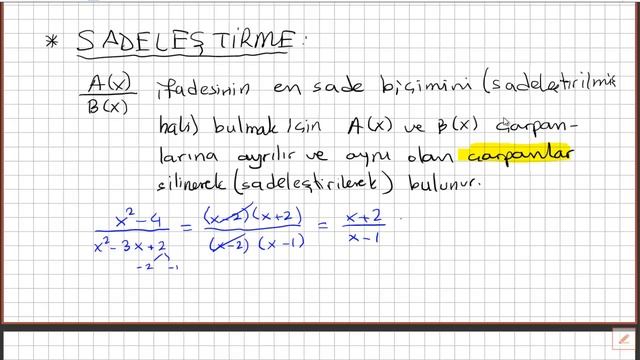 * SADELEŞTİRME:
A(x)/B(x) ifadesinin en sade biçimini (sadeleştirilmiş
hali) bulmak için A(x) ve B(x) çarpan-
larına ayrılır ve aynı olan çarpanlar
silinerek (sadeleştirilerek) bulunur.
x² - 4 / x² - 3x + 2 = (x-2)(x+2) / (x-2)(x-1) = x+2 / x-1
-2 -1